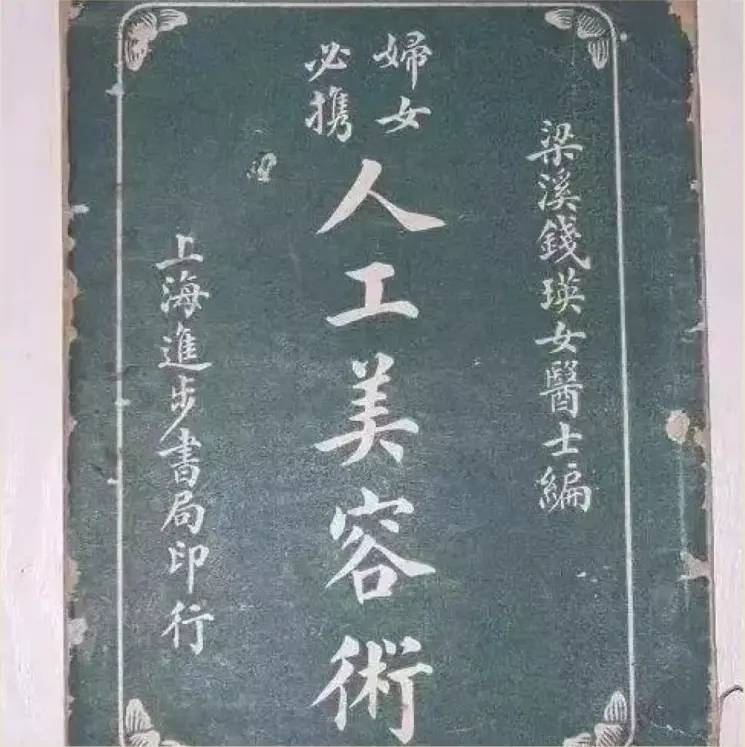 梁溪錢瑛女醫士編
婦女
必攜
人工美容術
上海進步書局印行